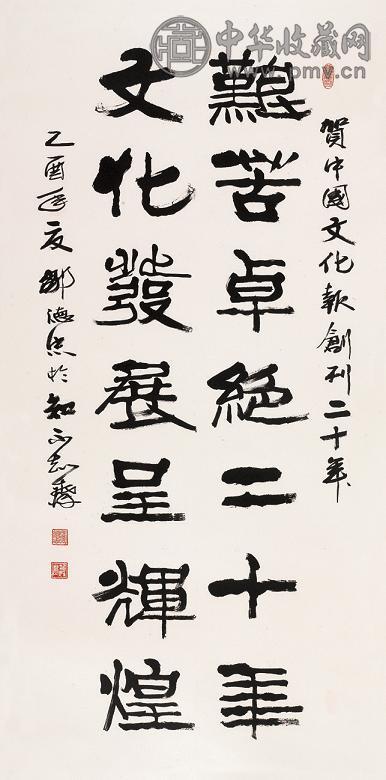 中华收藏网
www.pmv.cn
賀中國文化報創刊二十年
艱苦卓絕二十年
文化發展呈輝煌
乙酉年夏鄒德忠於知不知齋